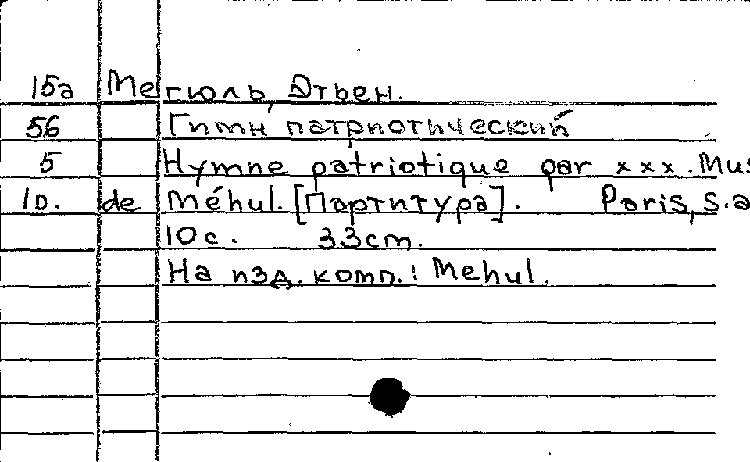 15а Мегюль, Этьен.
56 Гимн патриотический
5 Hymne patriotique par xxx. Mus
10. de Méhul. [Партитура]. Paris, s.a
10 с. 33 cm.
На изд. комп.: Mehul.